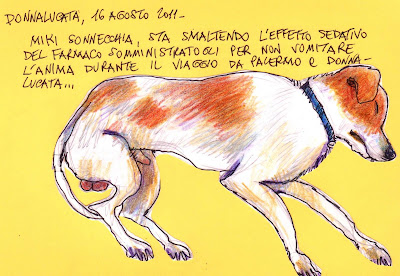 DONNALUCATA, 16 AGOSTO 2011-
MIKI SONNECCHIA, STA SMALTENDO L'EFFETTO SEDATIVO
DEL FARMACO SOMMINISTRATOGLI PER NON VOMITARE
L'ANIMA DURANTE IL VIAGGIO DA PALERMO E DONNA-
LUCATA...